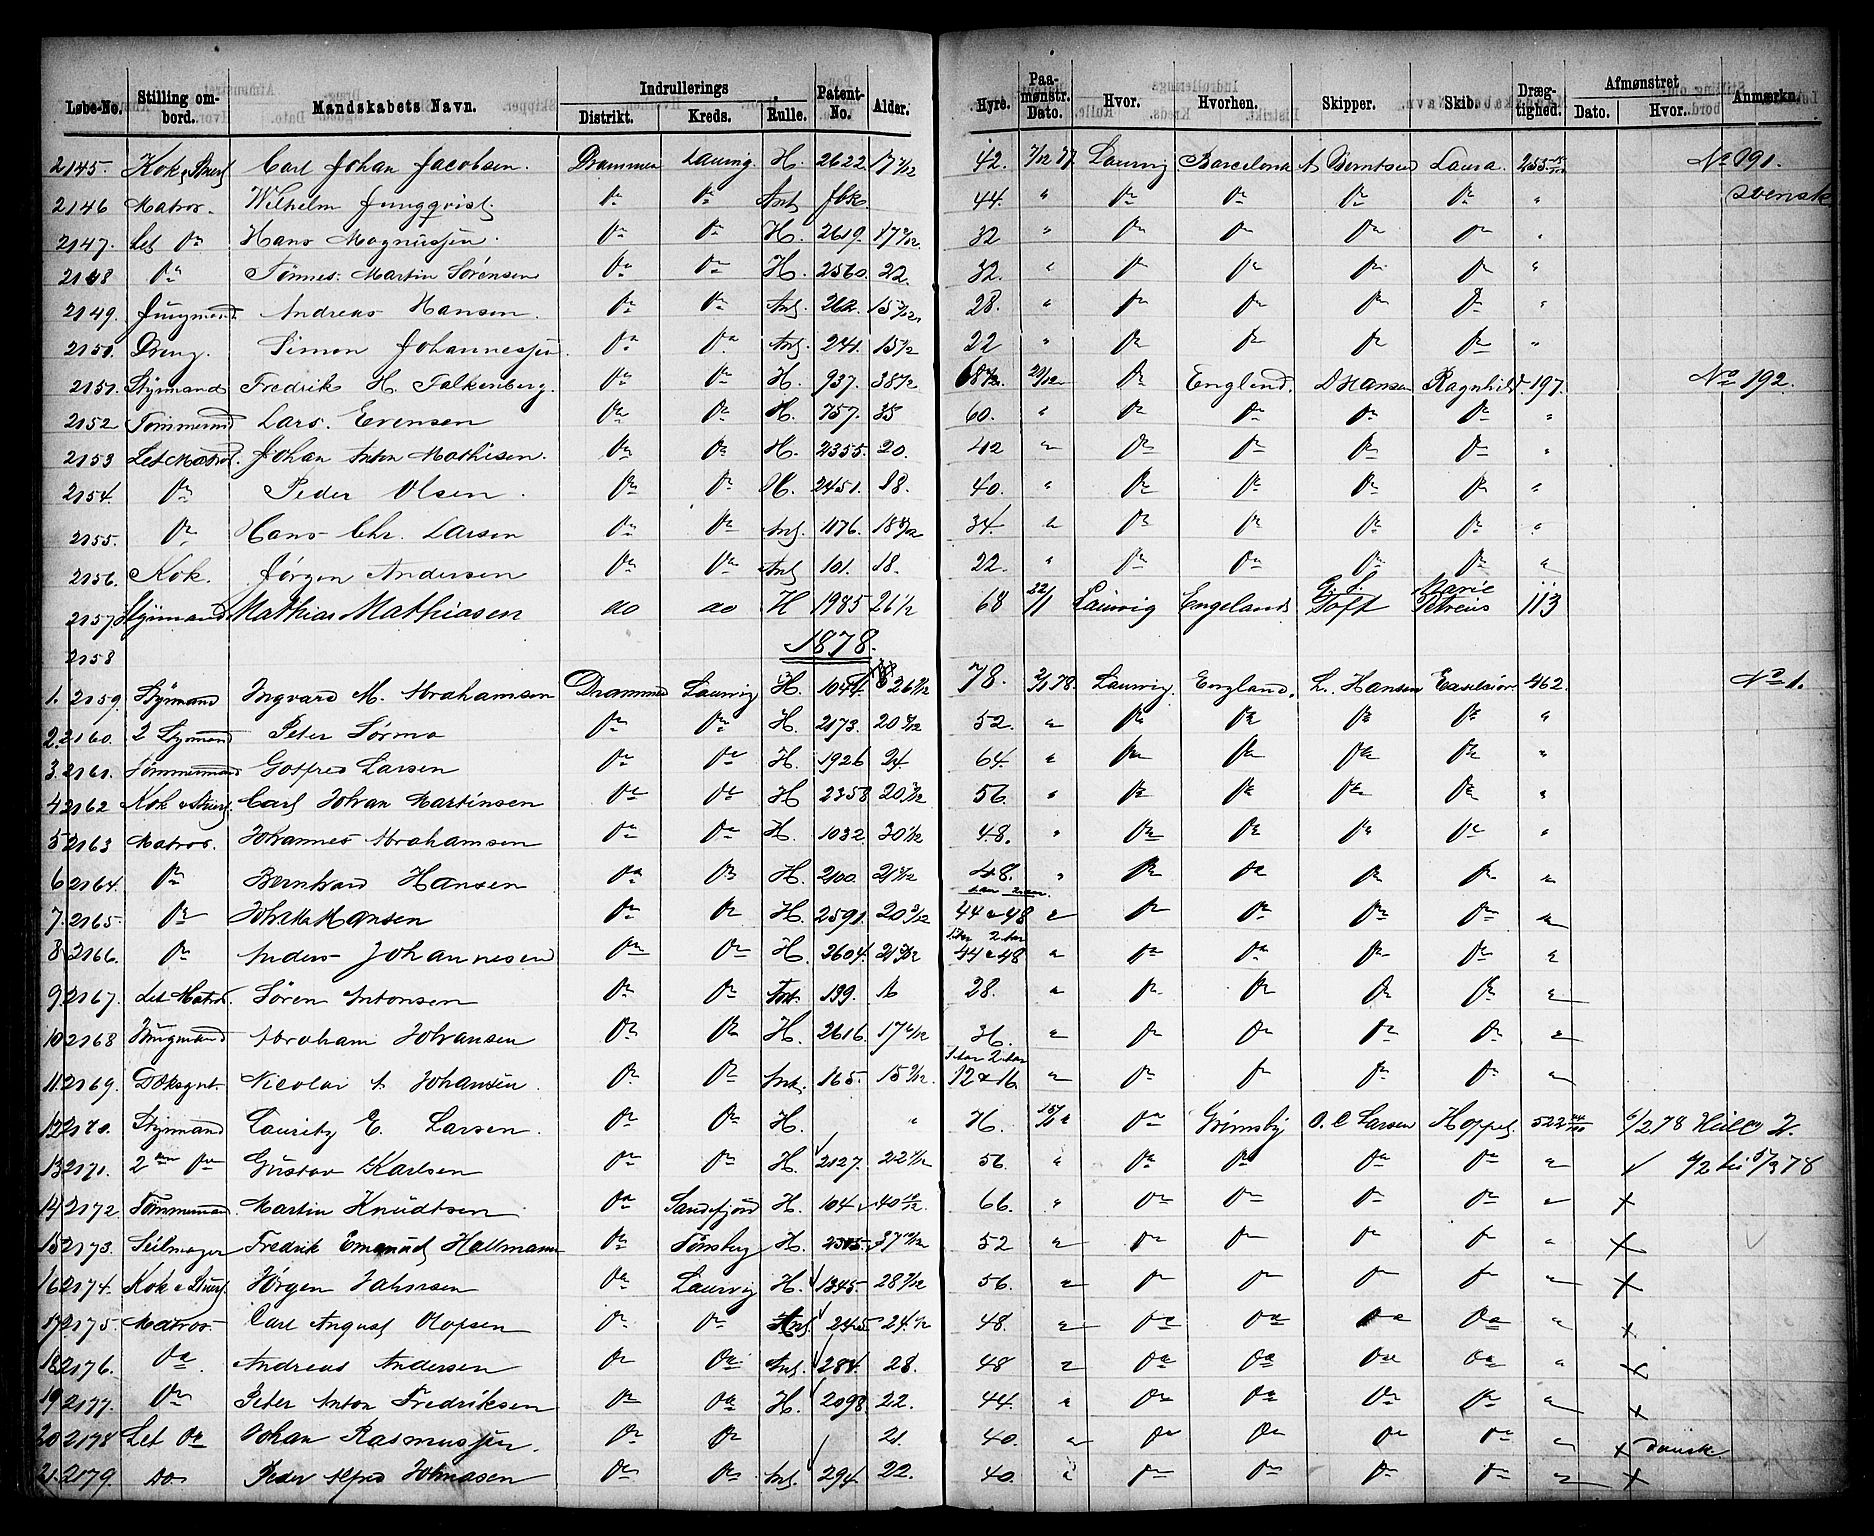 Løbe-No. Stilling om-bord. Mandskabets Navn. Indrullerings Distrikt. Kreds. Rulle. Patent-No. Alder. Hyre. Paa-mønstr. Dato. Hvor. Hvorhen. Skipper. Skib. Dræg-tighed. Afmønstret Dato. Hvor. Anmærkn.
2145. Kok & Stuert Carl Johan Jacobsen. Drammen Laurvig H. 2622. 17 42. 7/12 77 Laurvig Barcelona A Berntsen Laura. 255 No 191.
2146 Matros. Wilhelm Jungqvist. Do Do Ant fbk. 44. " Do Do Do Do " svensk
2147. Let Do Hans Magnussen. Do Do H. 2619. 17 32 " Do Do Do Do "
2148 Do Tönnes Martin Sörensen Do Do H. 2560. 22. 32. " Do Do Do Do "
2149. Jungmand Andreas Hansen. Do Do Ant. 262. 15 28. " Do Do Do Do "
2150. Dreng. Simon Johannessen. Do Do Ant. 241. 15 22 " Do Do Do Do "
2151. Styrmand Fredrik H. Falkenberg. Do Do H. 937. 38 68 20/12 Do England. D Hansen Ragnhild. 197. No 192.
2152 Tömmermd Lars. Evensen Do Do H. 757. 35 60. " Do Do Do Do "
2153 Let Matros. Johan Anton Mathisen. Do Do H. 2355. 20. 42 " Do Do Do Do "
2154. Do Peder Olsen. Do Do H. 2451. 18. 40. " Do Do Do Do "
2155. Do Hans Chr. Larsen Do Do Ant. 1176. 18 34. " Do Do Do Do "
2156. Kok. Jörgen Andersen Do Do Ant 101. 18. 22. " Do Do Do Do "
2157 Styrmand Mathias Mathiasen do do H 1985 26 1/2 68 22/1 Laurvig Engeland G. S. Toft Marie Petreus 113
2158 1878.
1. 2159. Styrmand Ingvard M. Abrahamsen Drammen Laurvig H. 1044. 26 78. 2/1 78. Laurvig. England. L. Hansen Exelsior 462. No 1.
2. 2160. 2 Styrmand Peter Sörmo Do Do H. 2173. 20 52. " Do Do Do Do "
3. 2161. Tömmermand Gotfred Larsen Do Do H. 1926 24 64. " Do Do Do Do "
4 2162 Kok & Stuert. Carl Johan Martinsen Do Do H 2358 20 56. " Do Do Do Do "
5 2163 Matros. Johannes Abrahamsen Do Do H. 1032 30 48. " Do Do Do Do "
6 2164. Do Bernhard Hansen Do Do H. 2100. 21 48. " Do Do Do Do "
7. 2165. Do Hansen Do Do H. 2591. 20 44 & 48 " Do Do Do Do "
8 2166. Do Anders Johannesen Do Do H. 2604. 21 44 & 48 " Do Do Do Do "
9. 2167. Let Matros. Sören Antonsen Do Do Ant. 199. 16 28. " Do Do Do Do "
10 2168 Jungmand Abraham Johansen Do Do H. 2616. 17 36. " Do Do Do Do "
11. 2169. Dæksgut. Nicolai A. Johansen. Do Do Ant. 165. 15 12 & 16. " Do Do Do Do "
12 2170. Styrmand Lauritz E. Larsen. Do Do H. " 76. 15/1 " Do Grimsby O. C Larsen Hoppet. 522 6/2 78 Hull 2.
13 2171. 2den Do Gustav Karlsen Do Do H. 2127. 22 56. " Do Do Do Do " 4/2 til 5/3 78
14 2172. Tömmermd. Martin Knudtsen Do Sandefjord H. 104. 40 66. " Do Do Do Do " x
15 2173. Seilmager Fredrik Emanuel Hallmann Do Tönsberg H. 37 52 " Do Do Do Do " x
16 2174. Kok & Stuert. Jörgen Jahnsen Do Laurvig H. 1345. 28 56. " Do Do Do Do " x
17 2175. Matros. Carl August Olofsen Do Do Ant. 245 24 48. " Do Do Do Do " x
18 2176. Do Andreas Andersen Do Do Ant. 284. 28. 48 " Do Do Do Do " x
19 2177. Do Peter Anton Fredriksen Do Do H. 2098. 22. 44. " Do Do Do Do " x
20 2178 Let Do Johan Rasmussen. Do Do 21. 40. " Do Do Do Do " x dansk
21. 2179. Do Peder Alfred Johnasen Do Do Ant. 294. 22. 40. " Do Do Do Do " x